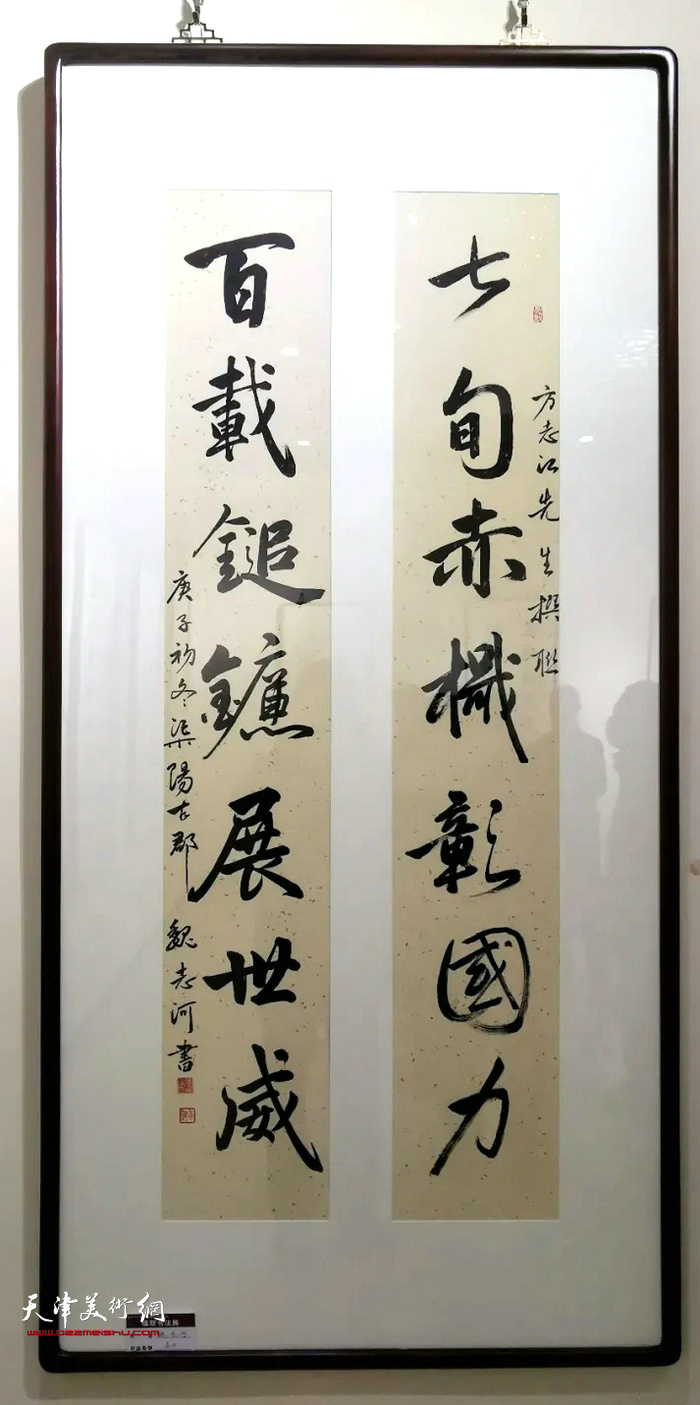 七旬赤幟彰國力
方志江先生撰联
百載鎚鐮展世威
庚子初冬渠陽古郡 魏志河書
天津美術網
www.022meishu.com
楹联书法展